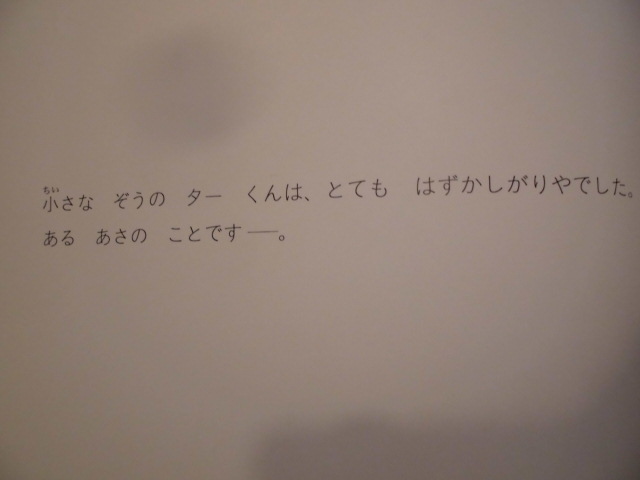 小さな　ぞうの　ター　くんは、とても　はずかしがりやでした。
ある　あさの　ことです――。